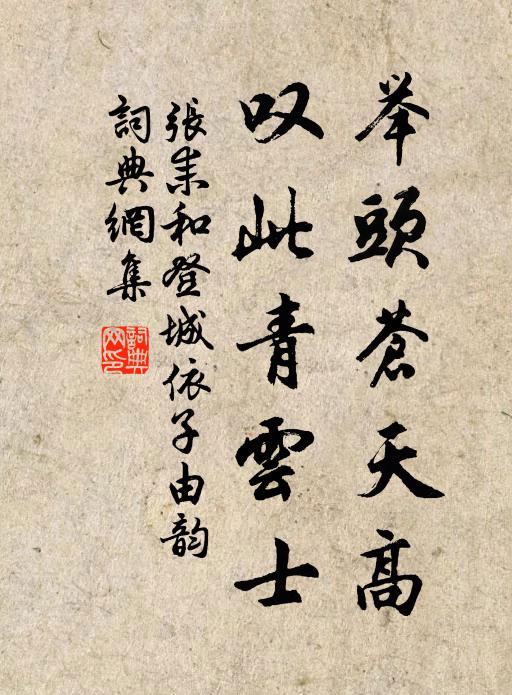 举頭苍天高
叹此青雲士
張耒和登城依子由韵
詞典網集
詞典网印